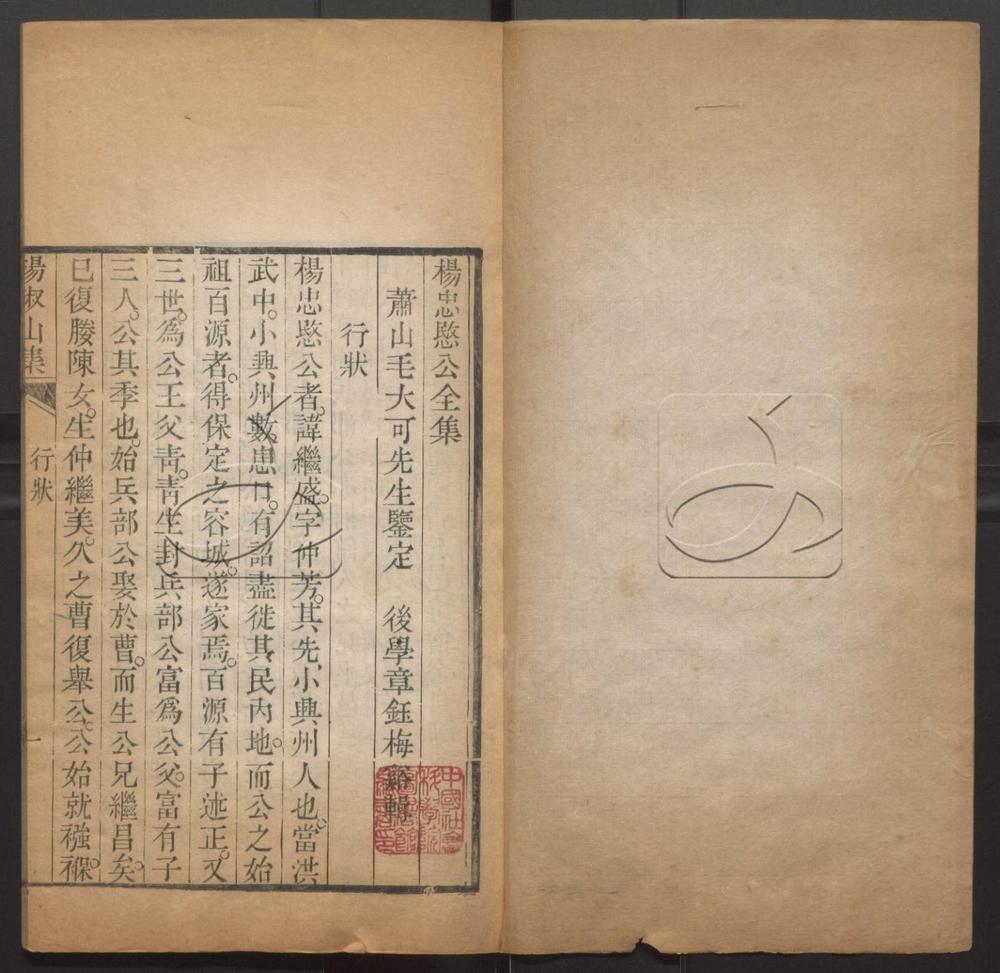 楊忠愍公全集
蕭山毛大可先生鑒定　後學章鈺梅谿輯
行狀
楊忠愍公者。諱繼盛。字仲芳。其先小興州人也。當洪
武中。小興州數患口。有詔盡徙其民內地。而公之始
祖百源者。得保定之容城。遂家焉。百源有子述正。又
三世。爲公王父青。青生封兵部公富爲公父。富有子
三人。公其季也。始兵部公娶於曹。而生公兄繼昌矣。
已復媵陳女。生仲繼美。久之曹復舉公。公始就襁褓。
楊椒山集
行狀
一
中國社會科學院